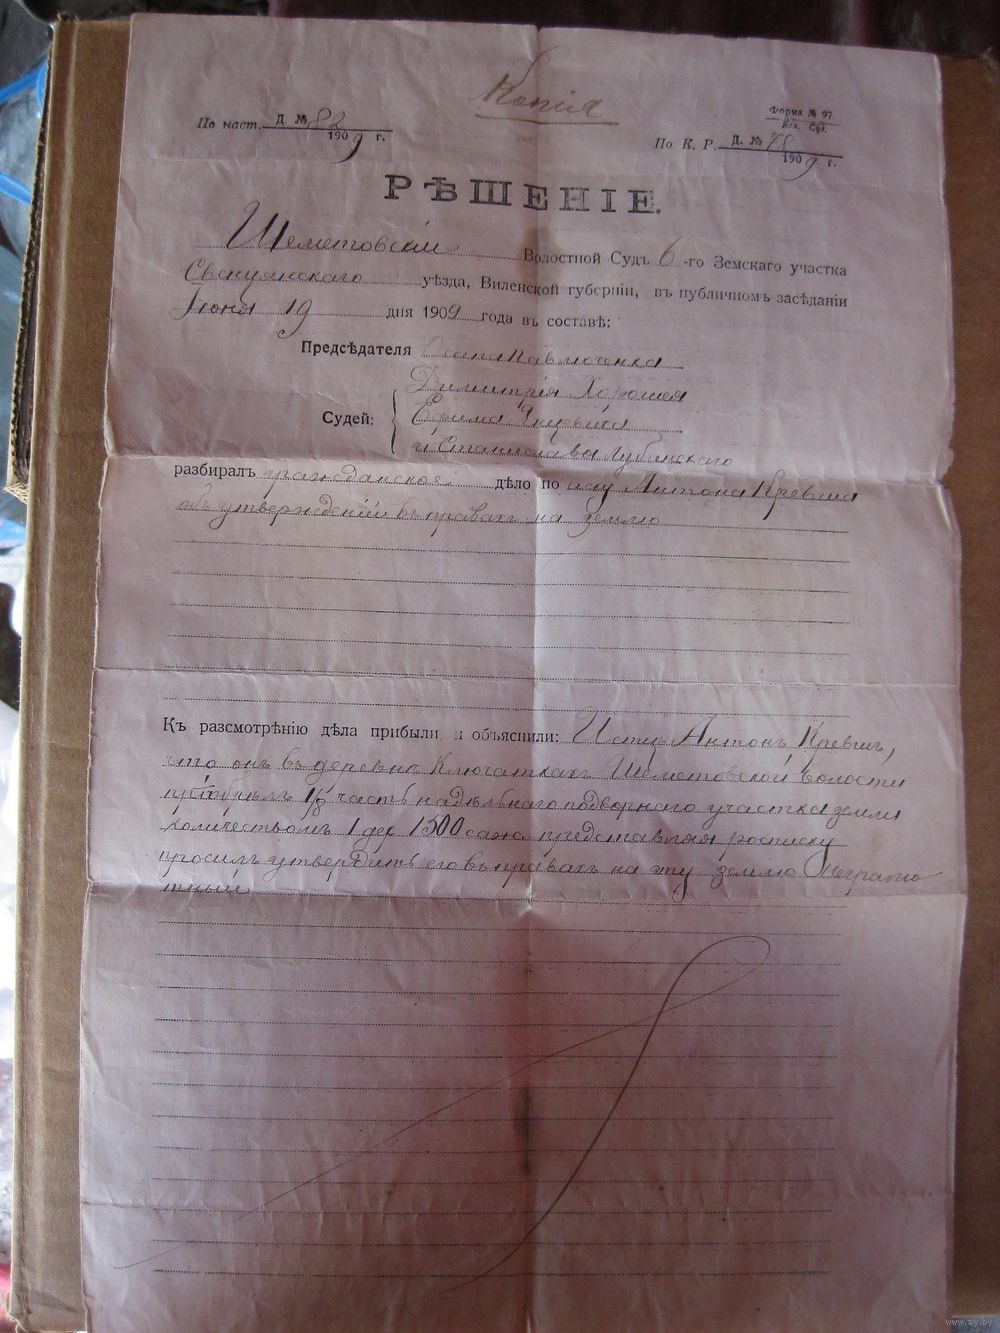 Копія
Форма № 97.
Вол. Суд.
По наст. Д. № 82
1909 г.
По К. Р. Д. № 78
1909 г.
РѢШЕНІЕ.
Шеметовскій Волостной Судъ 6-го Земскаго участка
Свенцянскаго уѣзда, Виленской губерніи, въ публичномъ засѣданіи
Іюня 19 дня 1909 года въ составѣ:
Предсѣдателя Павлюченка
Димитрія Хорошея
Судей: Ефима
и Станислава
разбиралъ гражданское дѣло по иску Антона Кревша
объ утвержденіи въ правахъ на землю
Къ разсмотрѣнію дѣла прибыли и объяснили: Истцъ Антонъ Кревшъ,
что онъ въ деревнѣ Ключаткахъ Шеметовской волости
пріобрѣлъ 1/8 часть надѣльнаго подворнаго участка земли
количествомъ 1 дес 1500 саж. представляя росписку
просилъ утвердить его въ правахъ на эту землю Неграмо
тный
www.ay.by